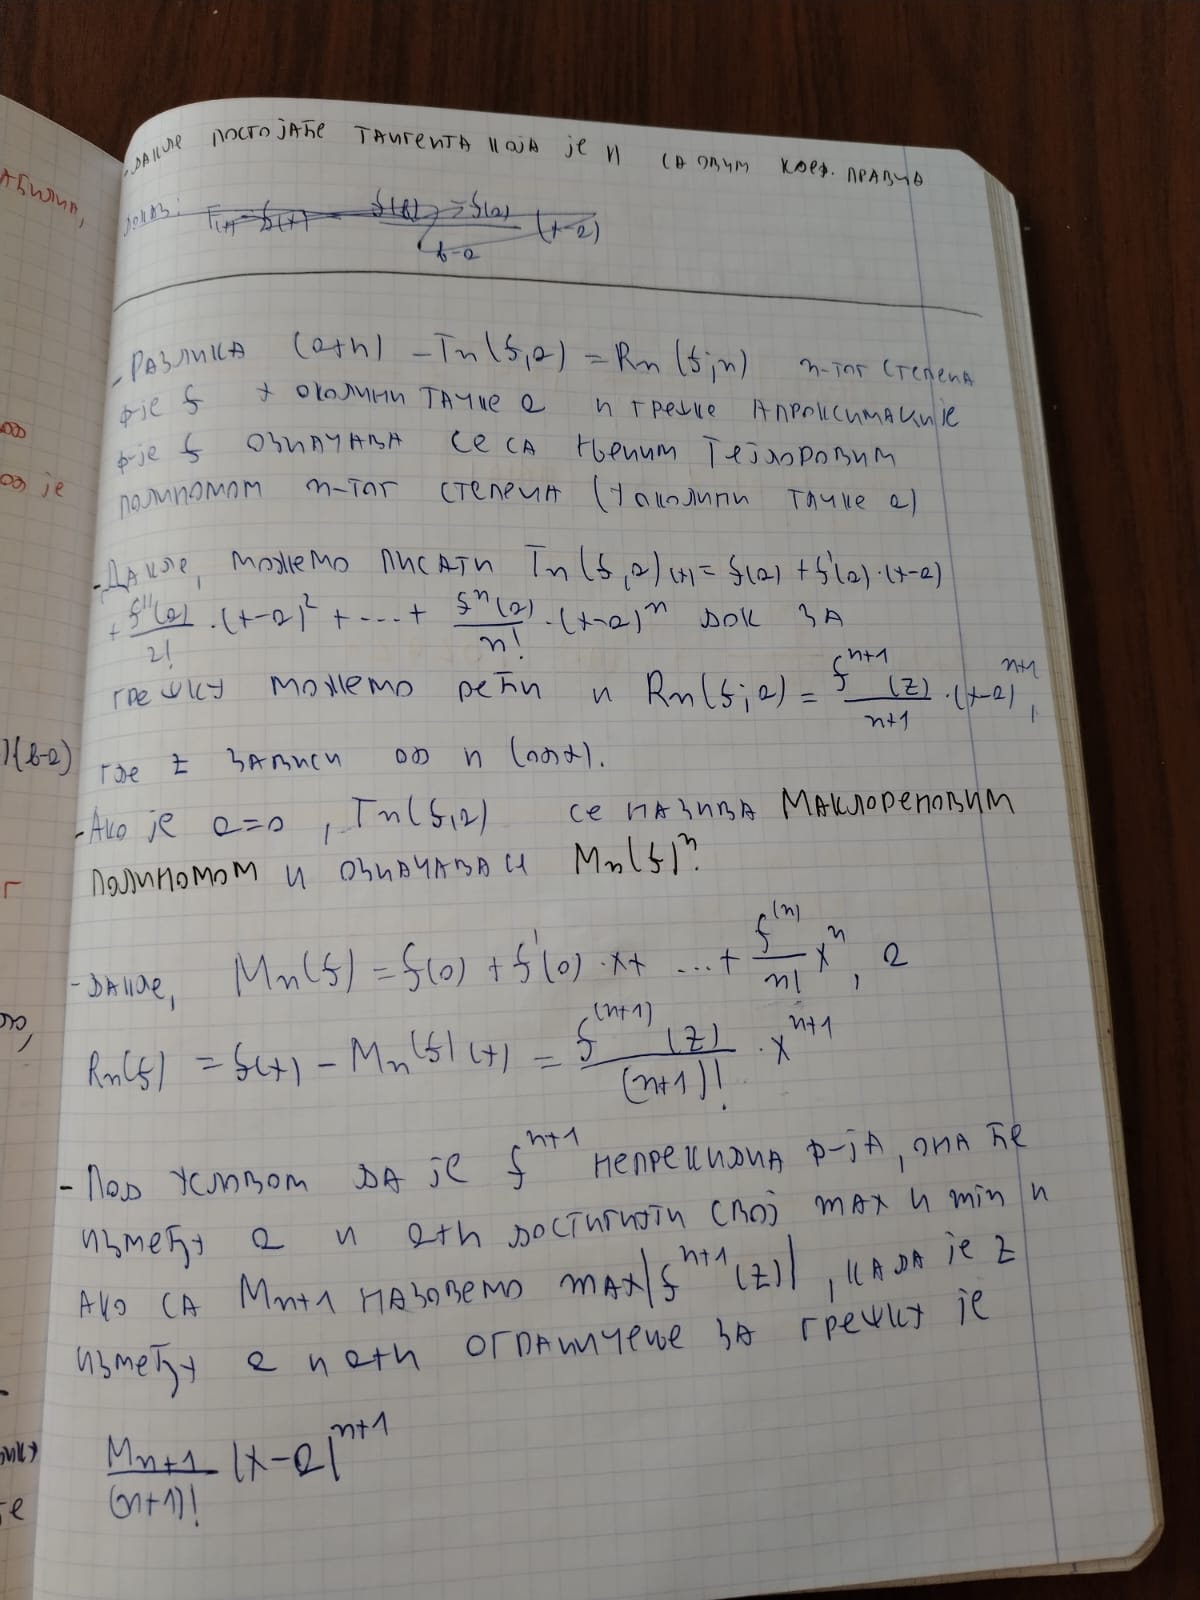 - Дакле постојаће тангента која је ∥ са овим коеф. правца
доказ: T(x) = f(x) f(b) - f(a) / b-a (x-a)
- Разлика (a+h) - Tn(f,a) = Rn(f;h) n-тог степена
ф-је f у околини тачке a и грешке апроксимације
ф-је f означава се са њеним Тејлоровим
полиномом n-тог степена (у околини тачке a)
- Дакле, можемо писати Tn(f,a)(x) = f(a) + f'(a)·(x-a)
+ f''(a)/2! ·(x-a)² + ... + fⁿ(a)/n! ·(x-a)ⁿ док за
грешку можемо рећи и Rn(f;a) = fⁿ⁺¹(z)/n+1 ·(x-a)ⁿ⁺¹,
где z зависи од h (од x).
- Ако је a=0, Tn(f,a) се назива Маклореновим
полиномом и означава и Mn(f)
- Дакле, Mn(f) = f(0) + f'(0)·x+ ...+ f⁽ⁿ⁾/n! xⁿ, а
Rn(f) = f(x) - Mn(f)(x) = f⁽ⁿ⁺¹⁾(z)/(n+1)! · xⁿ⁺¹
- Под условом да је fⁿ⁺¹ непрекидна ф-ја, она ће
између a и a+h достигнути свој max и min и
ако са Mn+1 назовемо max|fⁿ⁺¹(z)|, када је z
између a и a+h ограничење за грешку је
Mn+1/(n+1)! |x-a|ⁿ⁺¹
абилна,
је
)(b-a)
г